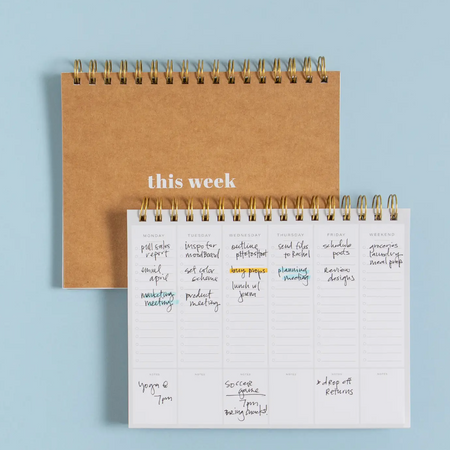 this week
MONDAY
TUESDAY
WEDNESDAY
THURSDAY
FRIDAY
WEEKEND
pull sales
report
email
april
marketing
meeting
inspo for
moodboard
set color
scheme
product
meeting
outline
photoshoot
buy props
lunch w/
send files
to Rachel
planning
meeting
schedule
posts
review
designs
groceries
laundry
meal prep
yoga @
7pm
soccer
game
7pm
bring snacks!
drop off
returns